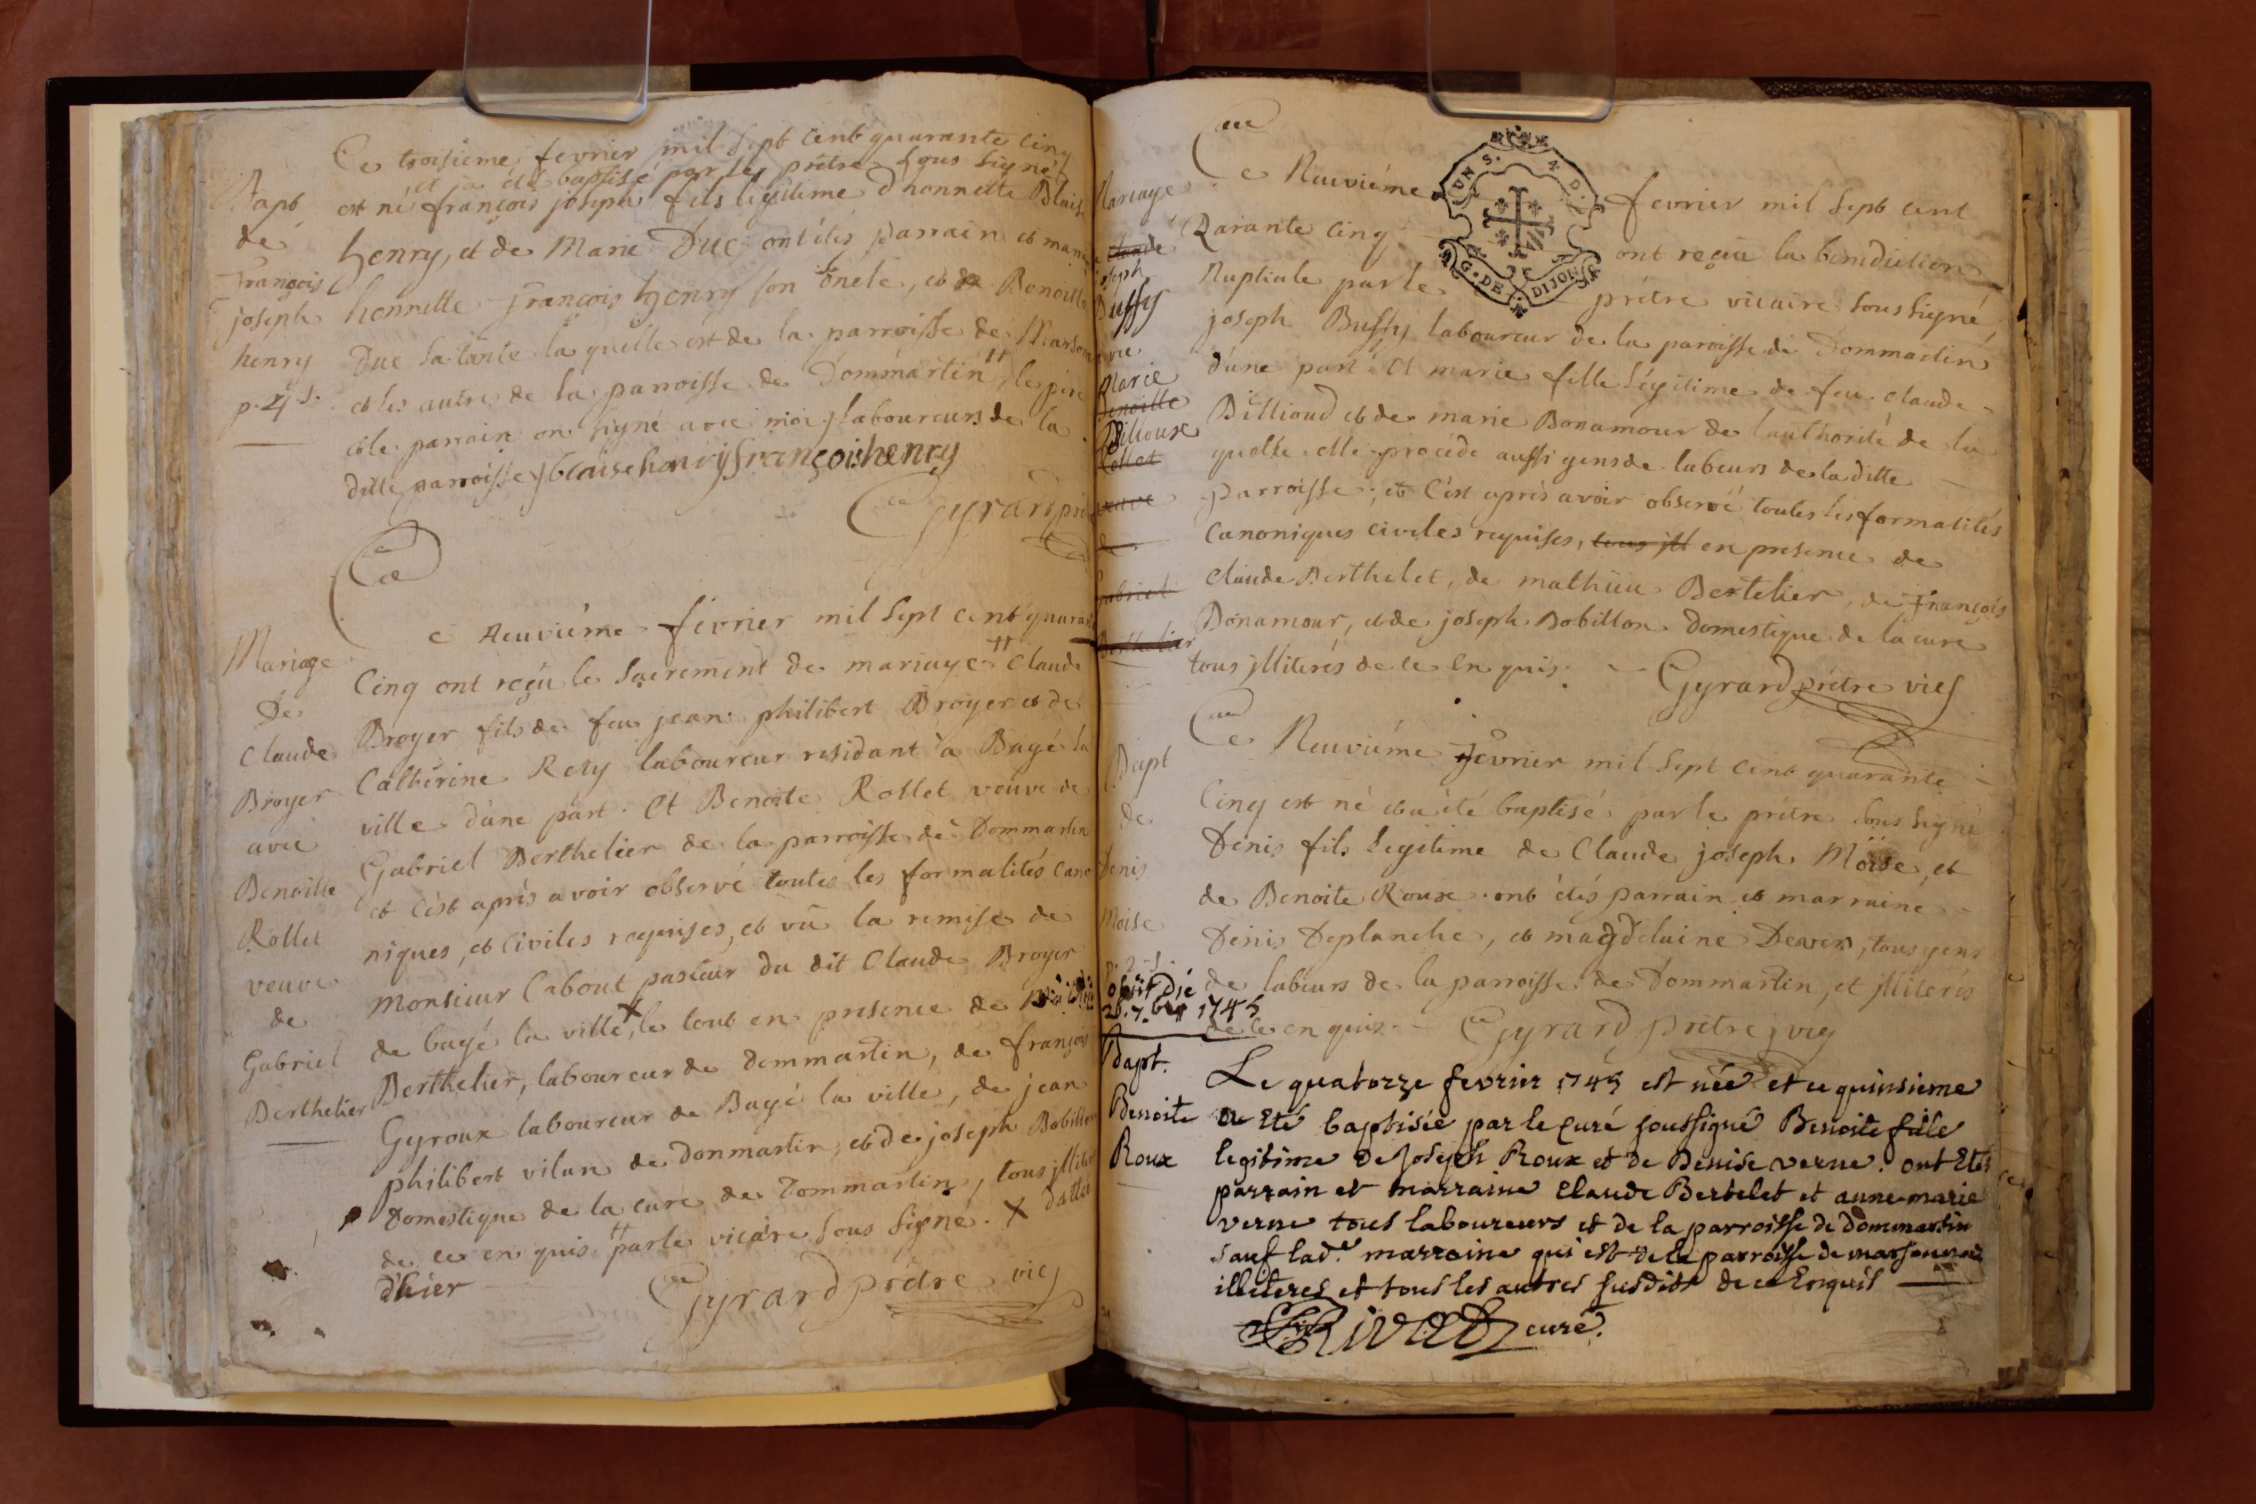 Ce troisieme fevrier mil sept cent quarante cinq
et a été baptisé par le prêtre sous signé
est né françois joseph fils legitime d'honnette Blaise
henry, et de Marie Duc ont étés parrain et
honnette françois henry son oncle, et Benoitte
Duc sa tante la quelle est de la parroisse de
et les autres de la parroisse de Dommartin le père
et le parrain on signé avec moi laboureurs de la
ditte parroisse blaise henry françois henry
Gyrard
Bapt
de
François
joseph
henry
Ce neuviéme fevrier mil sept cent
Cinq ont reçu le sacrement de mariage Claude
Broyer fils de feu jean philibert Broyer et de
Catherine Rety laboureur residant à Bagé la
ville d'une part. Et Benoite Rollet veuve de
Gabriel Berthelier de la parroisse de Dommartin
et c'est après avoir observé toutes les formalités cano
niques, et Civiles requises, et vû la remise de
Monsieur Cabout pasteur du dit Claude Broyer
de bagé la ville, le tout en presence de
Berthelier, laboureur de dommartin, de françois
Gyroux laboureur de Bagé la ville, de jean
philibert vilun de donmartin, et de joseph
Domestique de la cure de Dommartin, tous
de ce en quis par le vicaire sous signé. X datté
d'hier
Gyrard prêtre vic
Mariage
De
Claude
Broyer
avec
Benoitte
Rollet
veuve
de
Gabriel
Berthelier
Ce Neuviéme fevrier mil sept cent
Qarante cinq ont reçu la benediction
Nuptiale par le prêtre vicaire sous signé,
joseph Buffy laboureur de la paroisse de Dommartin
d'une part Et marie fille légitime de feu Claude
Billioud et de marie Bonamour de l'authorité de la
quelle elle procéde aussi gens de labeurs de la ditte
parroisse, et c'est après avoir observé toutes les formalités
Canoniques civiles requises, en presence de
Claude Berthelet, de mathieu Bertelier, de François
Bonamour, et de joseph Bobillon Domestique de la cure
tous jlliterés de ce en quis.
Gyrard prêtre vic
UN S. 4 D.
G. DE DIJON
Mariage
Buffy
Marie
Ce Neuviéme fevrier mil sept cent quarante
Cinq est né et a été baptisé par le prêtre sous signé
Denis fils legitime de Claude joseph Moise, et
de Benoite Roux ont étés parrain et marraine
Denis Deplanche, et magdelaine, tous gens
de labeurs de la parroisse de Dommartin, et jlliterés
de ce en quis. Gyrard prêtre vic
Bapt
de
Denis
Moise
obiit Die
26. 7.bre 1745
Le quatorze fevrier 1745 est née et ce quinsieme
a été baptisée par le curé soussigné Benoite fille
legitime de Joseph Roux et de Denise verne. ont étés
parrain et marraine Claude Bertelet et anne marie
verne tous laboureurs et de la parroisse de dommartin
sauf lad.e marraine qui est de la parroisse de
illiteres et tous les autres susdits de ce Enquis
curé.
Bapt.
Benoite
Roux